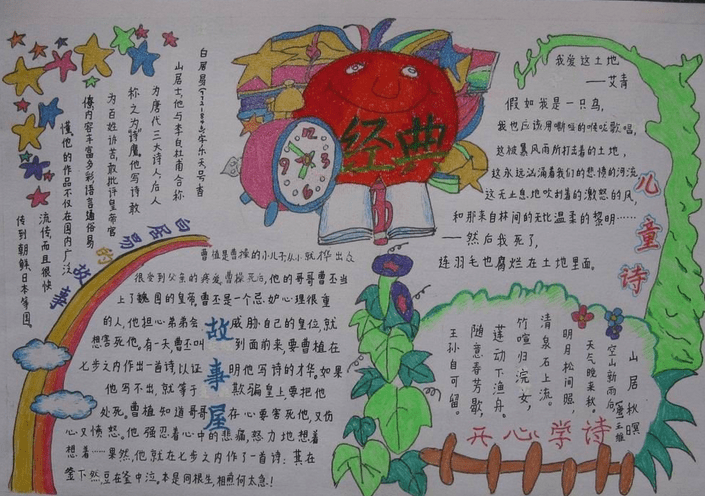 白居易(772-846)字乐天号香
山居士,他与李白杜甫合称
为唐代三大诗人,后人
称之为“诗魔”他写诗敢
为百姓诉苦敢批评皇帝官
僚内容丰富多彩语言通俗易
懂,他的作品不仅在国内广泛
流传,而且很快
传到朝鲜日本等国。
白居易的故事
经典
12
3
6
9
我爱这土地
——艾青
假如我是一只鸟,
我也应该用嘶哑的喉咙歌唱,
这被暴风雨所打击着的土地,
这永远汹涌着我们的悲愤的河流
这无止息地吹刮着的激怒的风,
和那来自林间的无比温柔的黎明……
——然后我死了,
连羽毛也腐烂在土地里面。
儿童诗
曹植是曹操的小儿子从小就才华出众
很受到父亲的疼爱,曹操死后,他的哥哥曹丕当
上了魏国的皇帝,曹丕是一个忌妒心理很重
的人,他担心弟弟会威胁自己的皇位,就
想害死他。有一天,曹丕叫到面前来,要曹植在
七步之内作出一首诗,以证明他写诗的才华。如果
他写不出,就等于欺骗皇上要把他
处死。曹植知道哥哥存心要害死他,又伤
心又愤怒。他强忍着心中的悲痛,努力地想着
想着……果然,他就在七步之内作了一首诗:萁在
釜下然,豆在釜中泣,本是同根生,相煎何太急!
故事屋
山居秋暝
(唐)王维
空山新雨后,
天气晚来秋。
明月松间照,
清泉石上流。
竹喧归浣女,
莲动下渔舟。
随意春芳歇,
王孙自可留。
开心学诗